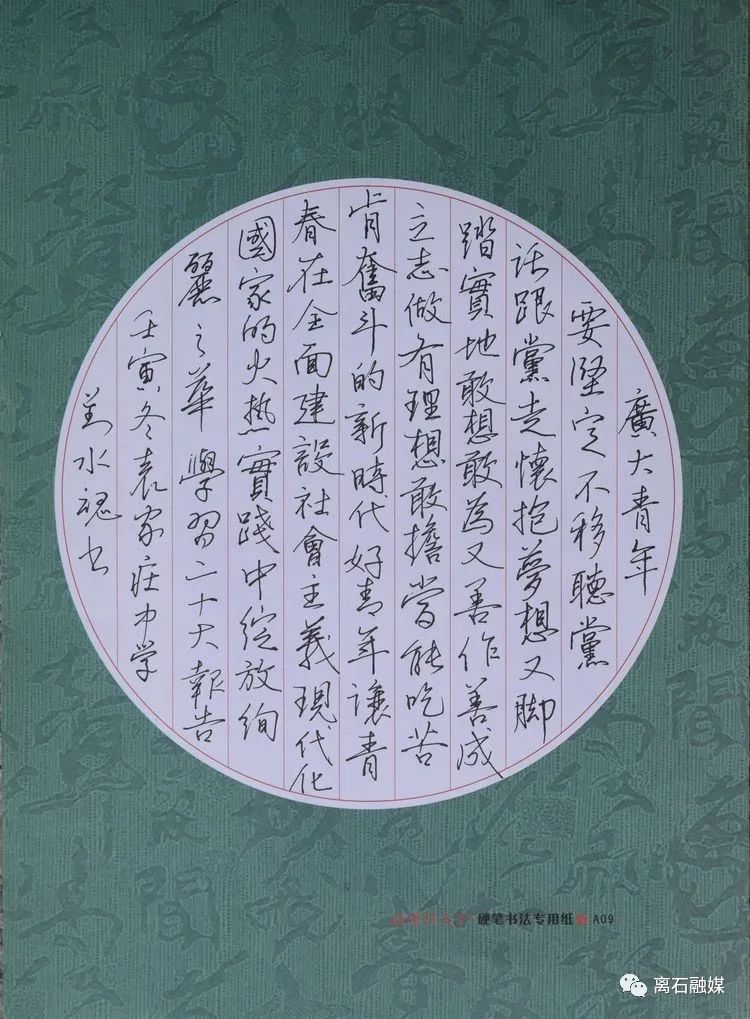 廣大青年
要堅定不移聽黨
話跟黨走懷抱夢想又脚
踏實地敢想敢為又善作善成
立志做有理想敢擔當能吃苦
肯奮斗的新時代好青年讓青
春在全面建設社會主義現代化
國家的火热實踐中绽放绚
麗之華 學習二十大報告
壬寅冬袁家庄中学
水 书
硬笔书法专用纸 A09
离石融媒